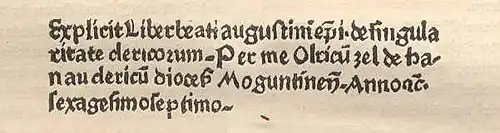 Explicit Liber beati augustini ep̄i. de singula
ritate clericorum- Per me Olricū zel de ha-
nau clericū dioceſ Moguntineñ- Anno ⁊c̄.
sexagesimoseptimo-